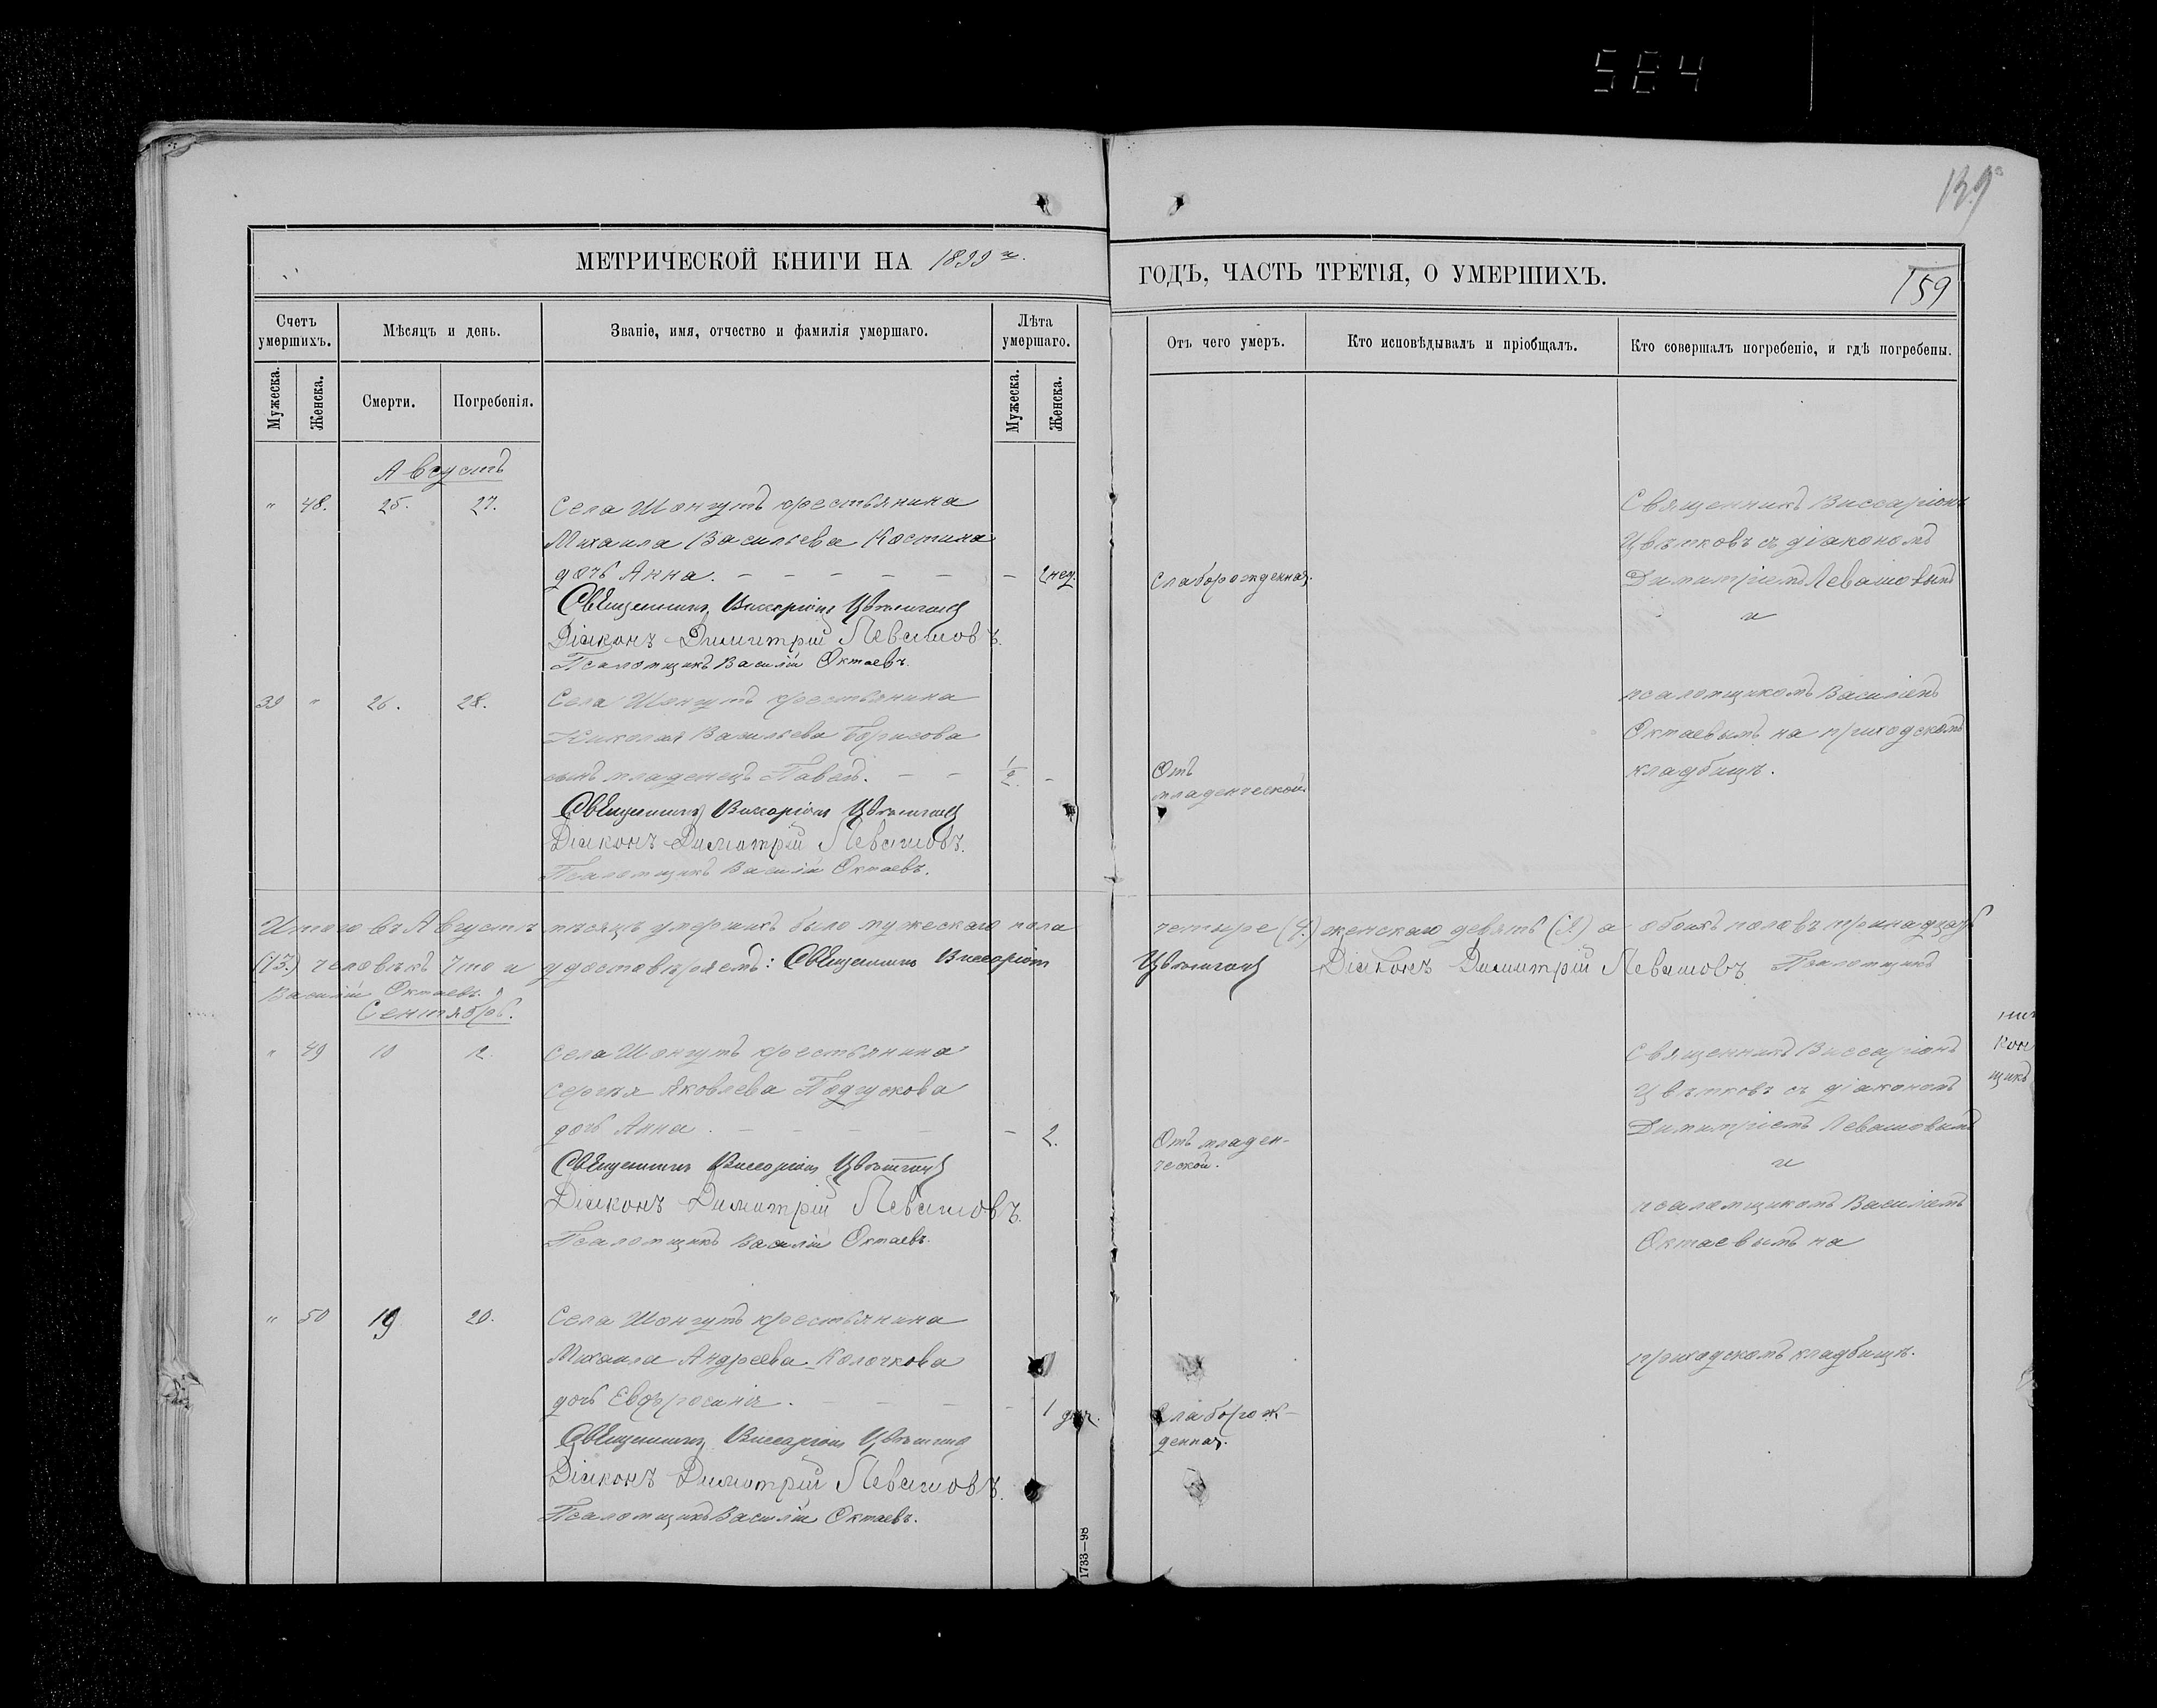 584
139
МЕТРИЧЕСКОЙ КНИГИ НА 1899 г.
ГОДЪ, ЧАСТЬ ТРЕТІЯ, О УМЕРШИХЪ.
159
Счетъ умершихъ.
Мѣсяцъ и день.
Званіе, имя, отчество и фамилія умершаго.
Лѣта умершаго.
Отъ чего умеръ.
Кто исповѣдывалъ и пріобщалъ.
Кто совершалъ погребеніе, и гдѣ погребены.
Мужеска.
Женска.
Смерти.
Погребенія.
Мужеска.
Женска.
Августъ
" 48. 25. 27. Села Шонгутъ крестьянина
Михаила Васильева Костина
дочь Анна. — — — — — — 2 нед.
Слаборожденная.
Священникъ Виссаріонъ Цвѣтковъ
Діаконъ Димитрій Левашовъ.
Псаломщикъ Василій Октаевъ.
Священникъ Виссаріонъ
Цвѣтковъ съ діакономъ
Димитріемъ Левашовымъ
и
39 " 26. 28. Села Шонгутъ крестьянина
Николая Васильева Борисова
сынъ младенецъ Павелъ. — — 1/2 —
Отъ
младенческой.
Священникъ Виссаріонъ Цвѣтковъ
Діаконъ Димитрій Левашовъ.
Псаломщикъ Василій Октаевъ.
псаломщикомъ Василіемъ
Октаевымъ на приходскомъ
кладбищѣ.
Итого въ Августѣ мѣсяцѣ умершихъ было мужескаго пола четыре (4.) женскаго девять (9) а обоихъ половъ тринадцать
(13.) человѣкъ Что и удостовѣряемъ: Священникъ Виссаріонъ Цвѣтковъ Діаконъ Димитрій Левашовъ Псаломщикъ
Василій Октаевъ.
Сентябрь.
" 49 10 12. Села Шонгутъ крестьянина
Сергѣя Яковлева Подгускова
дочь Анна. — — — — — 2.
Отъ младен-
ческой.
Священникъ Виссаріонъ Цвѣтковъ
Діаконъ Димитрій Левашовъ.
Псаломщикъ Василій Октаевъ.
Священникъ Виссаріонъ
Цвѣтковъ съ діакономъ
Димитріемъ Левашовымъ
и
псаломщикомъ Василіемъ
Октаевымъ на
" 50 19 20. Села Шонгутъ крестьянина
Михаила Андреева Колочкова
дочь Евфросинія. — — — — 1
Слаборож-
денная.
Священникъ Виссаріонъ Цвѣтковъ
Діаконъ Димитрій Левашовъ.
Псаломщикъ Василій Октаевъ.
приходскомъ кладбищѣ.
кон
щикъ
1733—98